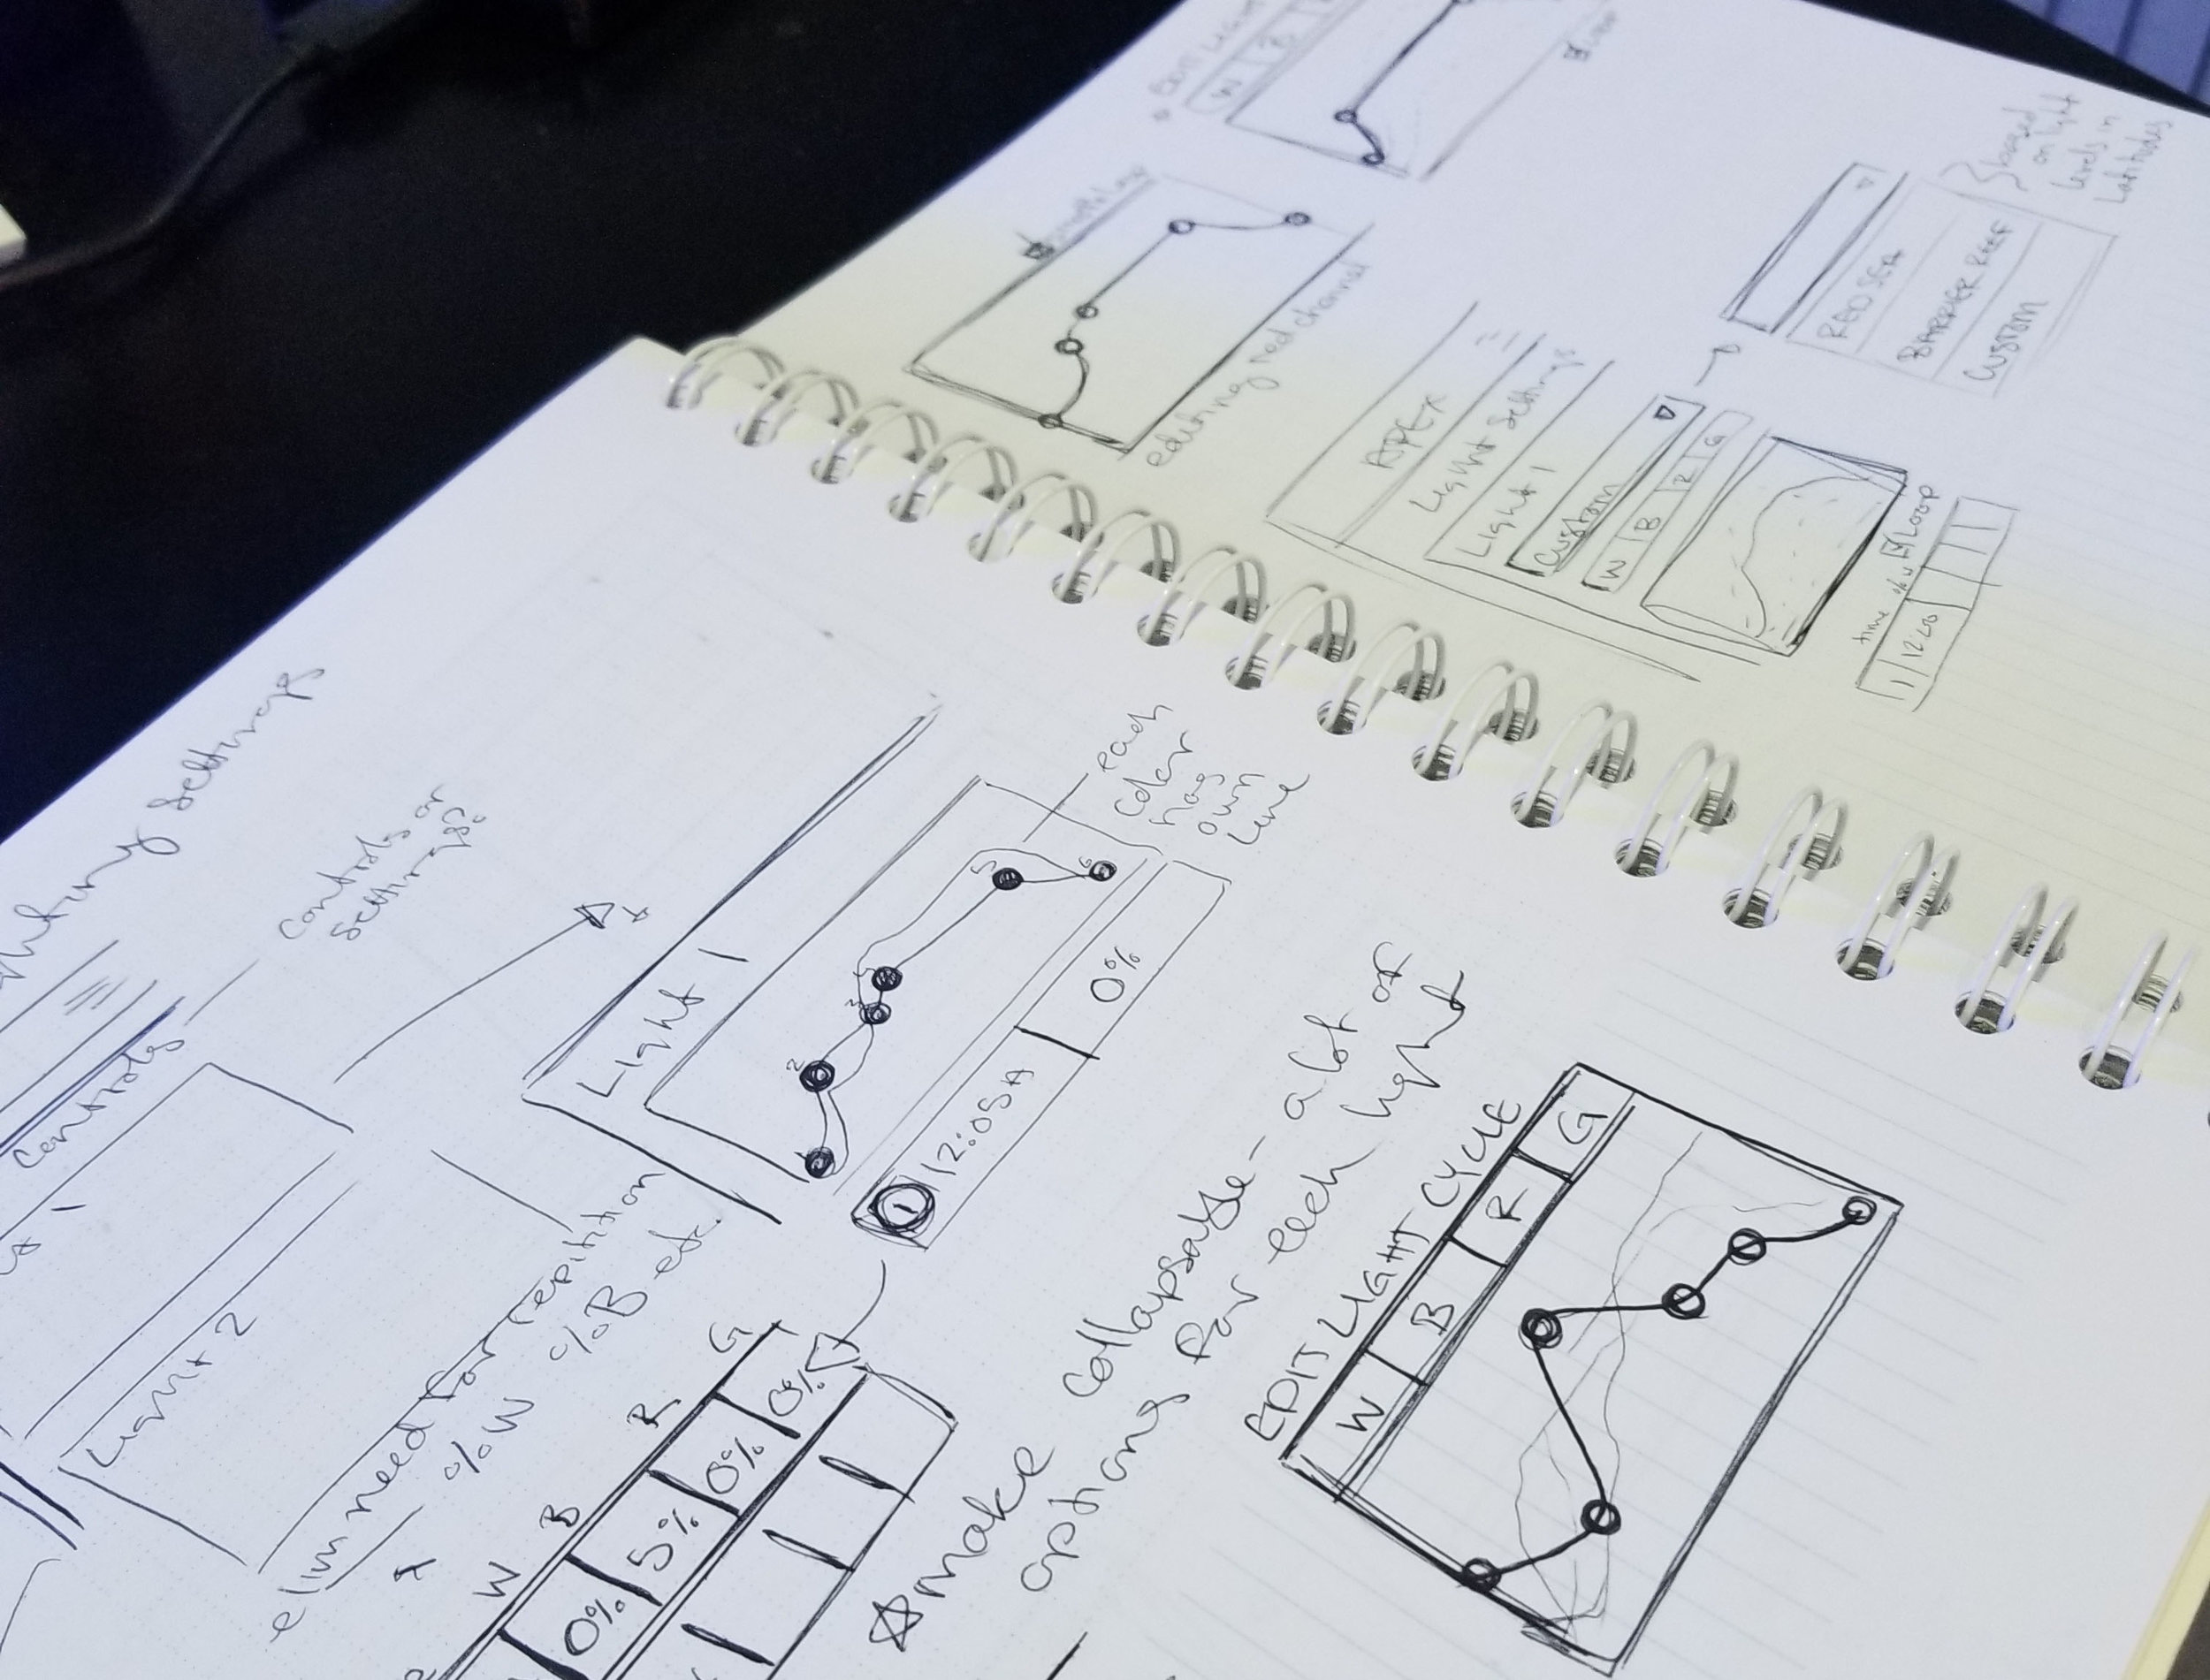 settings
controls or
settings?
controls
Light 2
elim need for repitition
%W %B etc.
Light 1
each
color
has
own
line
1 2 3 5 6
1 12:05A 0%
W B R G
0% 5% 0% 0%
☆make collapsable - a lot of
options for each light
EDIT LIGHT CYCLE
W B R G
editing red channel
APEX
Light Settings
Light 1
Custom
W B R G
Loop
time %W
1 12:00
RED SEA
BARRIER REEF
CUSTOM
based
on light
levels in
latitudes
W B